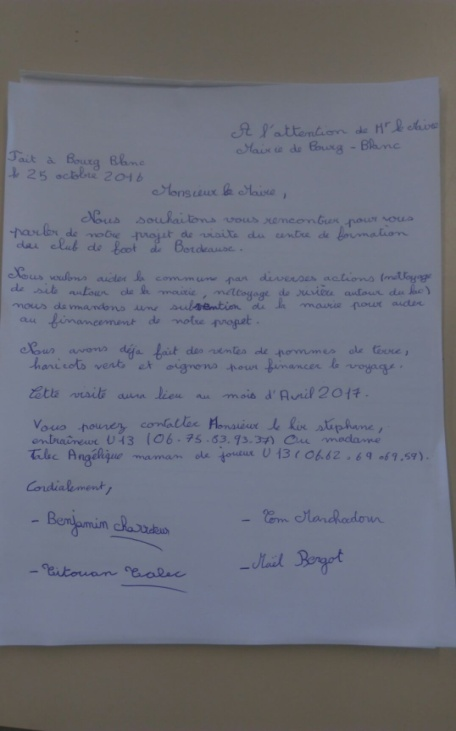 A l'attention de Mr le Maire
Mairie de Bourg-Blanc
Fait à Bourg Blanc
le 25 octobre 2016
Monsieur le Maire,
Nous souhaitons vous rencontrer pour vous
parler de notre projet de visite du centre de formation
du club de foot de Bordeaux.
Nous voulons aider la commune par diverses actions (nettoyage
de site autour de la mairie, nettoyage de rivière autour du lac)
nous demandons une subvention de la mairie pour aider
au financement de notre projet.
Nous avons déjà fait des ventes de pommes de terre,
haricots verts et oignons pour financer le voyage.
Cette visite aura lieu au mois d'Avril 2017.
Vous pouvez contacter Monsieur le hir stéphane,
entraîneur U13 (06.75.53.93.37) Ou madame
Talec Angélique maman de joueur U13 (06.62.69.59).
Cordialement,
- Benjamin
- Tom Marchadour
- Titouan Talec
- Maël Bergot